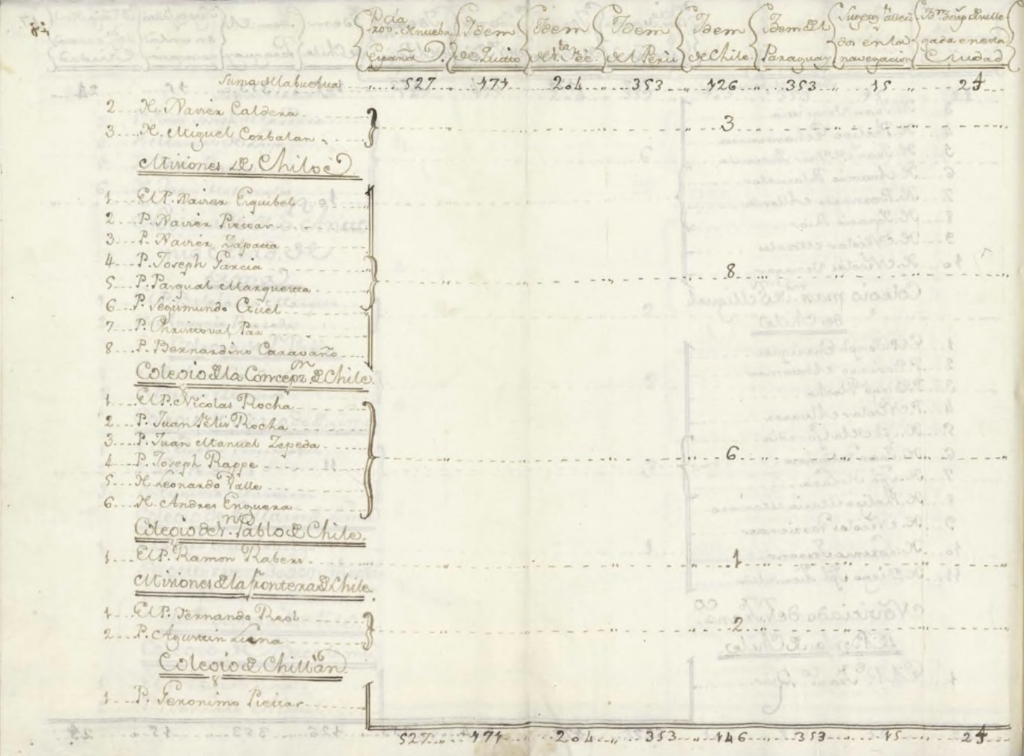 De la Prov.ª de Nueva España. Idem de Quito Idem de S.ta Feé. Idem del Perú Idem de Chile Idem del Paraguay en esta navegacion en esta Ciudad
Suma de la buelta 527 171 204 353 126 353 15 24
2 H. Xavier Caldera
3 H. Miguel Corbalan 3
Misiones de Chiloè
1 El P. Xavier Esquibel
2 P. Xavier Pietas
3 P. Xavier Zapata
4 P. Joseph Garcia
5 P. Pasqual Marquesta 8
6 P. Segimundo Güel
7 P. Christoval Paz
8 P. Bernardino Caravaño
Colegio de la Concepn. de Chile
1 El P. Nicolas Rocha
2 P. Juan Felis Rocha
3 P. Juan Manuel Zepeda
4 P. Joseph Rappe 6
5 H. Leonardo Valle
6 H. Andres Enguera
Colegio de S.n Pablo de Chile
1 El P. Ramon Rabert 1
Misiones de la Frontera de Chile
1 El P. Fernando Real
2 P. Agustin 2
Colegio de Chillan
1 P. Geronimo Pietas
527 171 204 353 146 353 15 24